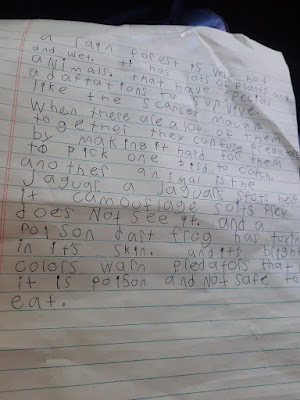 a rain forest is very hot
and wet. it has lots of plants and
animals. that have special
adaptations to survive.
like the scarlet macaw.
When there are a lot of them
together they confuse predators
by making it hard for them
to pick one bird to catch.
another animal is the
Jaguar a Jaguars spots help
it camouflage so its prey
does not see it. and a
poison dart frog has toxins
in its skin. and its bright
colors warn predators that
it is poison and not safe to
eat.